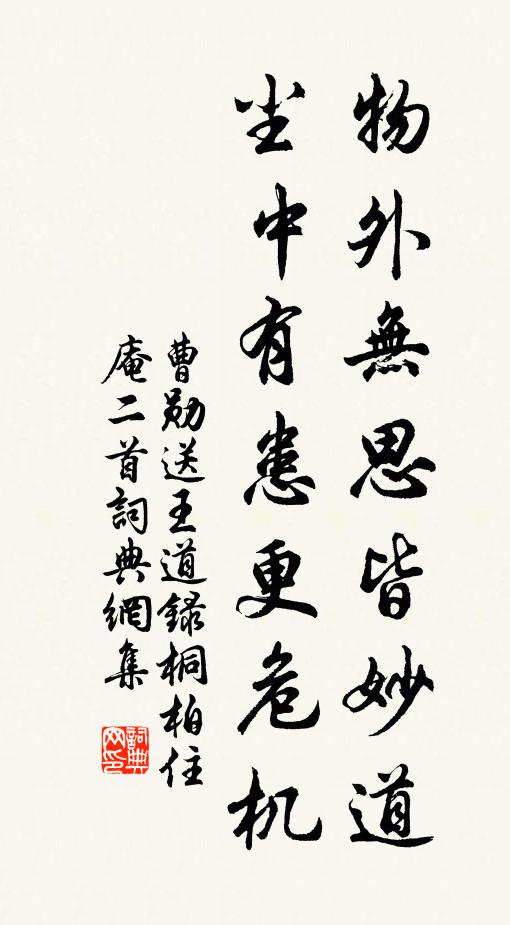 物外無思皆妙道
尘中有患更危机
曹勋送王道録桐柏住
庵二首詞典網集
詞典网印